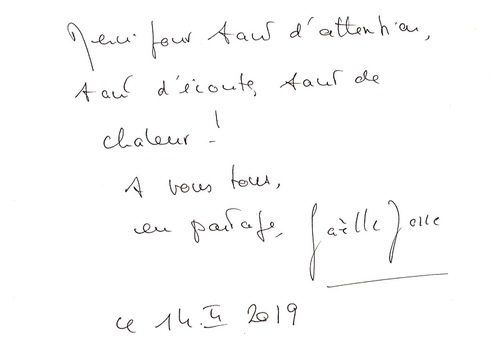 Merci pour tant d'attention,
tant d'écoute, tant de
chaleur !
A vous tous,
en partage, Gaëlle Josse
ce 14.II 2019